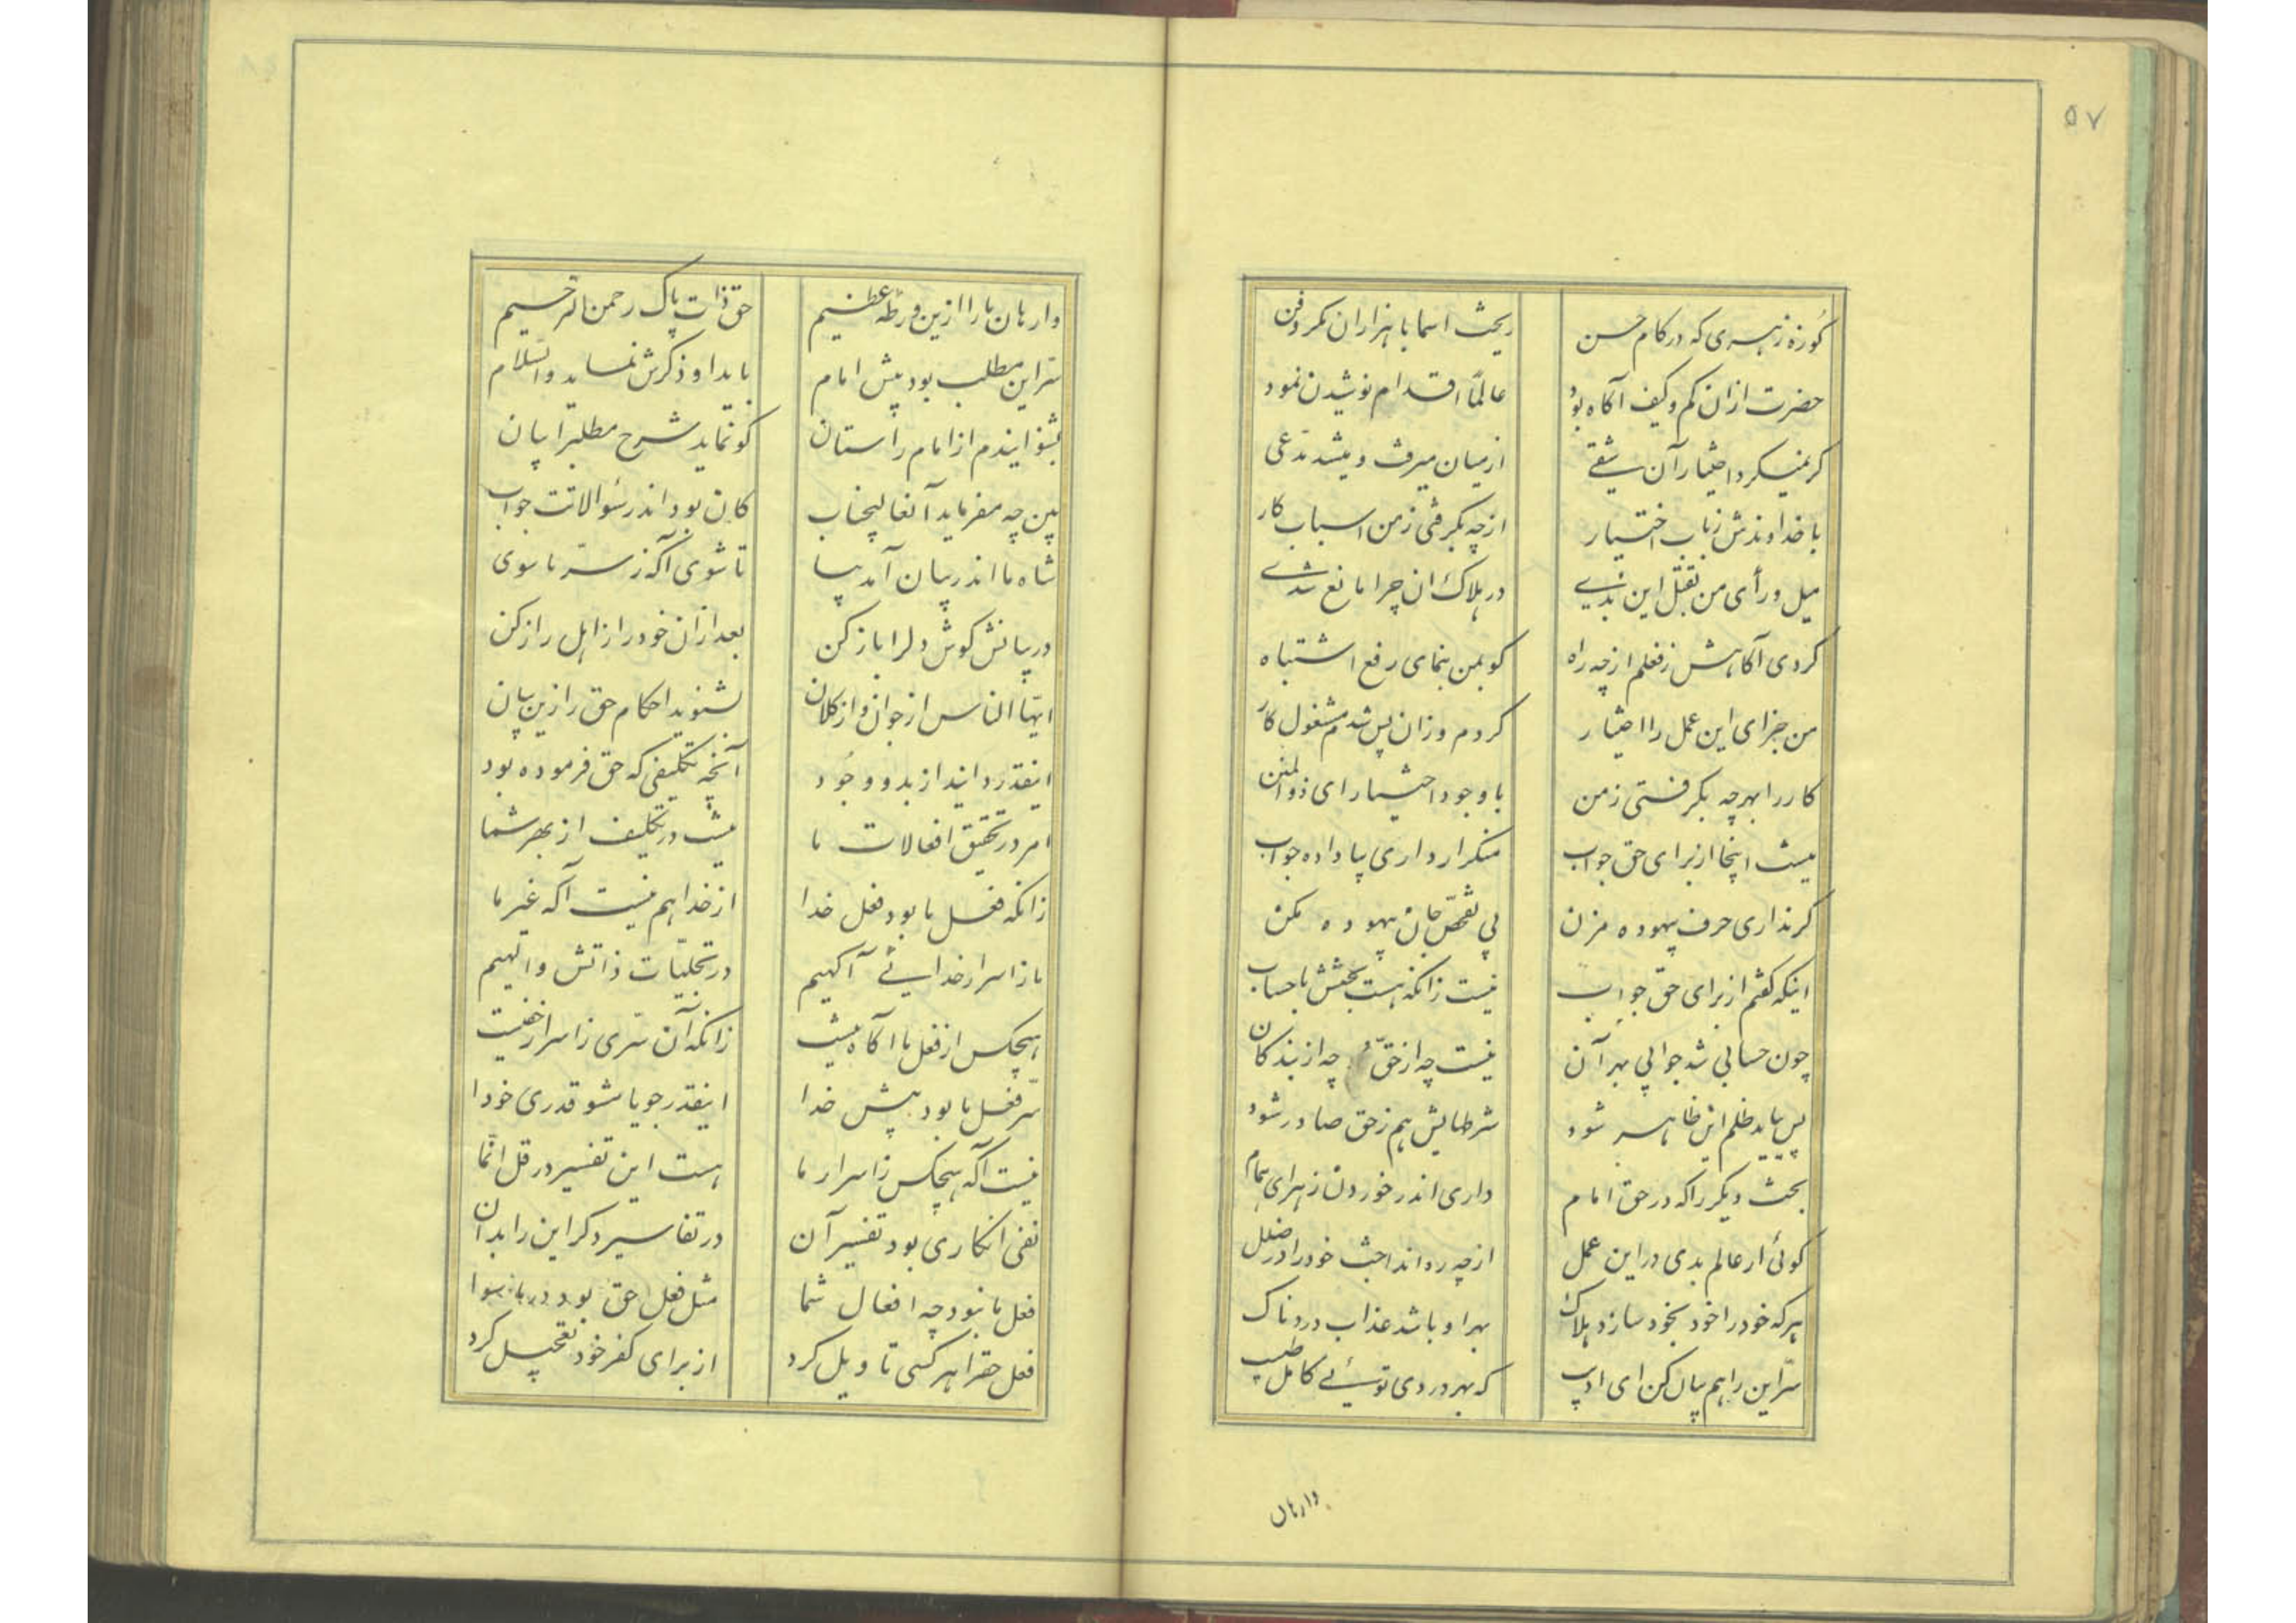 ۵۷
کوزه زهری که در کام حسن ریخت اسما با هزاران مکر و فن
حضرت ازان کم و کیف آکاه بود عالماً اقدام نوشیدن نمود
کر نمیکرد اختیار آن شقی از میان میرفت و میشد مدعی
با خداوندش زباب اختیار از چه بکرفتی زمن اسباب کار
میل و رأی من بقتل این بدی در هلاک ان چرا مانع شدی
کردی آکاهش زفعلم از چه راه کو بمن بنمای رفع اشتباه
من جزای این عمل را اختیار کردم وزان پس شدم مشغول کار
کار را بهر چه بکرفتی زمن با وجود اختیار ای ذوالمنن
نیست اینجا از برای حق جواب منکرار داری بیا داده جواب
کر نداری حرف بیهوده مزن پی تفحص جان بیهوده مکن
اینکه کفتم از برای حق جواب نیست زانکه هست بحثش با حساب
چون حسابی شد جوابی بهر آن نیست چه از حق چه از بندکان
پس بباید ظلم اش ظاهر شود شرطهایش هم زحق صادر شود
بحث دیکر را که در حق امام داری اندر خوردن زهر ای همام
کوئی ار عالم بدی در این عمل از چه ره انداخت خود را در خلل
هر که خود را خود بخود سازد هلاک بهر او باشد عذاب دردناک
سر این را هم بیان کن ای ادیب که بهر دردی توئی کامل طبیب
وارهان
وارهان ما را ازین ورطه عظیم حق ذات پاک رحمن الرحیم
سر این مطلب بود پیش امام باید او ذکرش نماید والسلام
بشنو ایندم از امام راستان کو نماید شرح مطلب را بیان
بین چه مفرماید آنعالیجناب کان بود اندر سؤالاتت جواب
شاه ما اندر بیان آمد بیا تا شوی آکه ز سر ما سوی
در بیانش کوش دلرا باز کن بعد ازان خود را ز اهل راز کن
ایها الناس از جوان و از کلان بشنوید احکام حق را زین بیان
اینقدر دانید از بدو وجود آنچه تکلیفی که حق فرموده بود
امر در تحقیق افعالات ما نیست در تکلیف از بهر شما
زانکه فعل ما بود فعل خدا از خدا هم نیست آکه غیر ما
ما ز اسرار خدایی آکهیم در تجلیات ذاتش والهیم
هیچکس از فعل ما آکاه نیست زانکه آن سری ز اسرار خفیست
سر فعل ما بود پیش خدا اینقدر جویا مشو قدری خودا
نیست آکه هیچکس ز اسرار ما هست این تفسیر در قل انما
نفی انکاری بود تفسیر آن در تفاسیر دکر این را بدان
فعل ما نبود چه افعال شما مثل فعل حق بود در ماسوا
فعل حقرا هر کسی تاویل کرد از برای کفر خود تعجیل کرد